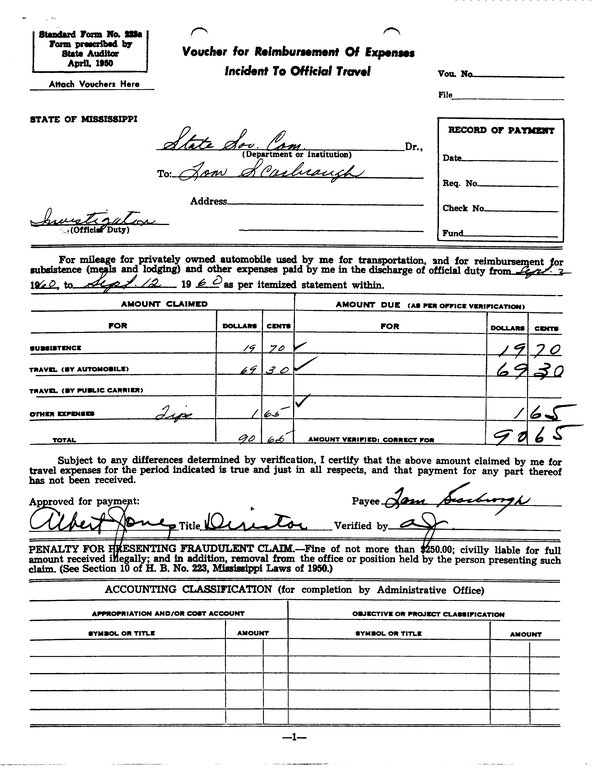 Standard Form No. 223a
Form prescribed by
State Auditor
April, 1950
Attach Vouchers Here
Voucher for Reimbursement Of Expenses
Incident To Official Travel
Vou. No.
File
STATE OF MISSISSIPPI
State Sov. Com. Dr.,
(Department or Institution)
To: Tom Scarbrough
Address
Investigator
(Official Duty)
RECORD OF PAYMENT
Date
Req. No.
Check No.
Fund
For mileage for privately owned automobile used by me for transportation, and for reimbursement for
subsistence (meals and lodging) and other expenses paid by me in the discharge of official duty from Sept. 2
1960, to Sept. 12 1960 as per itemized statement within.
AMOUNT CLAIMED AMOUNT DUE (AS PER OFFICE VERIFICATION)
FOR DOLLARS CENTS FOR DOLLARS CENTS
SUBSISTENCE 19 70 ✓ 19 70
TRAVEL (BY AUTOMOBILE) 69 30 ✓ 69 30
TRAVEL (BY PUBLIC CARRIER)
OTHER EXPENSES Tips 1 65 ✓ 1 65
TOTAL 90 65 AMOUNT VERIFIED: CORRECT FOR 90 65
Subject to any differences determined by verification, I certify that the above amount claimed by me for
travel expenses for the period indicated is true and just in all respects, and that payment for any part thereof
has not been received.
Approved for payment: Payee Tom Scarbrough
Albert Jones Title Director Verified by aJ.
PENALTY FOR PRESENTING FRAUDULENT CLAIM.—Fine of not more than $250.00; civilly liable for full
amount received illegally; and in addition, removal from the office or position held by the person presenting such
claim. (See Section 10 of H. B. No. 223, Mississippi Laws of 1950.)
ACCOUNTING CLASSIFICATION (for completion by Administrative Office)
APPROPRIATION AND/OR COST ACCOUNT OBJECTIVE OR PROJECT CLASSIFICATION
SYMBOL OR TITLE AMOUNT SYMBOL OR TITLE AMOUNT
—1—